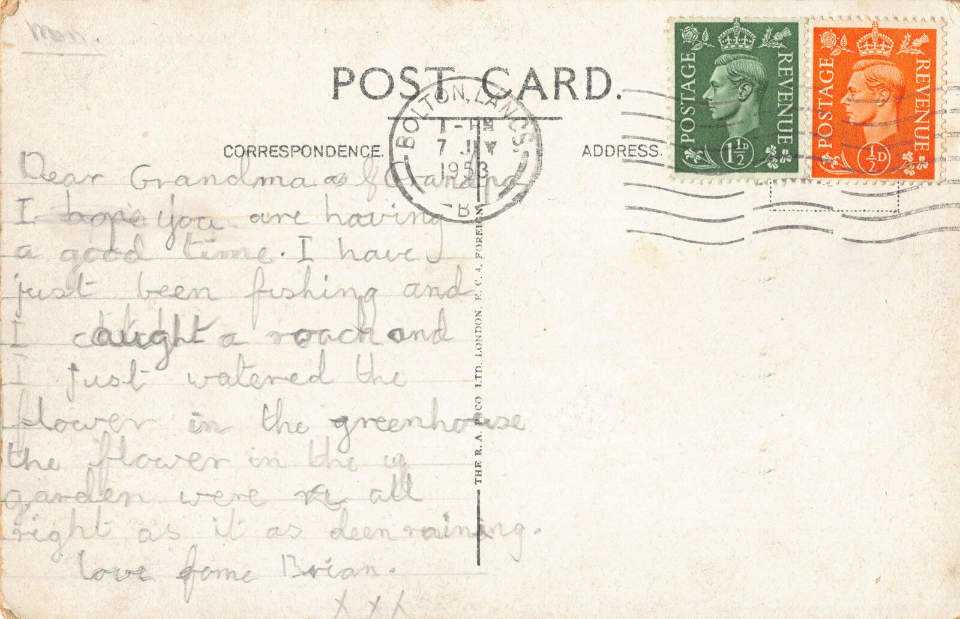 Mon.
POST CARD.
CORRESPONDENCE.
ADDRESS.
POSTAGE REVENUE
1½D
POSTAGE REVENUE
½D
BOLTON, LANCS.
PM
7
1953
B
Dear Grandma & Grandpa
I hope you are having
a good time. I have
just been fishing and
I caught a roach and
I just watered the
flower in the greenhouse
the flower in the g
garden were all
right as it as deen raining.
love fome Brian.
X X X
LTD. LONDON, E. C. 4. FOREIGN
THE R. A.